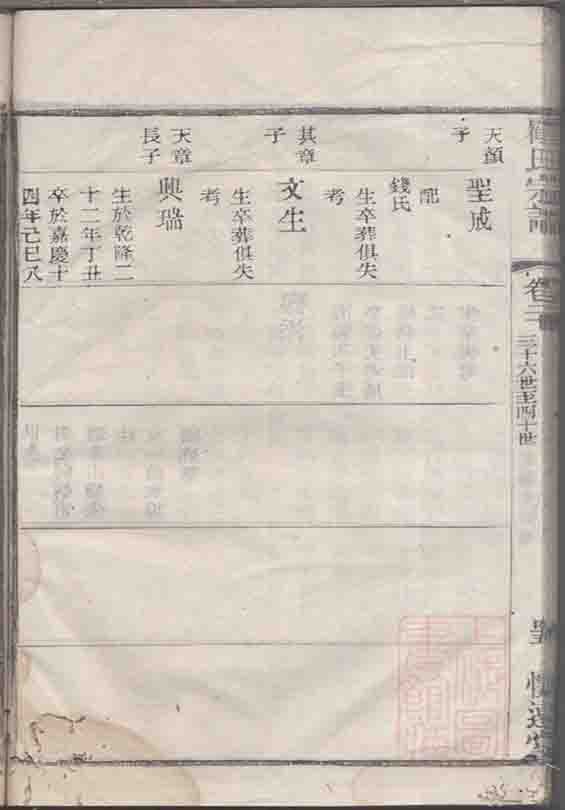 宗譜
卷二
三十六世至四十世
天顏
子
聖成
配
錢氏
生卒葬俱失
考
其章
子
文生
生卒葬俱失
考
天章
長子
興瑞
生於乾隆二
十二年丁丑
卒於嘉慶十
四年己巳八